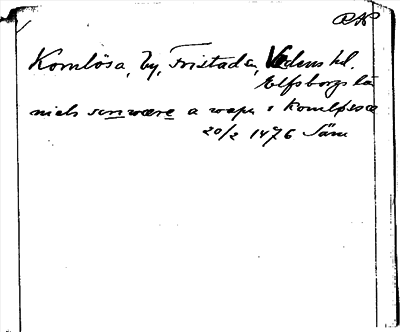 Kornlösa, by, Fristad sn, Vedens hd.
Elfsborgs län
niels sunware a wapn i kornløsæ
20/2 1476 Säm